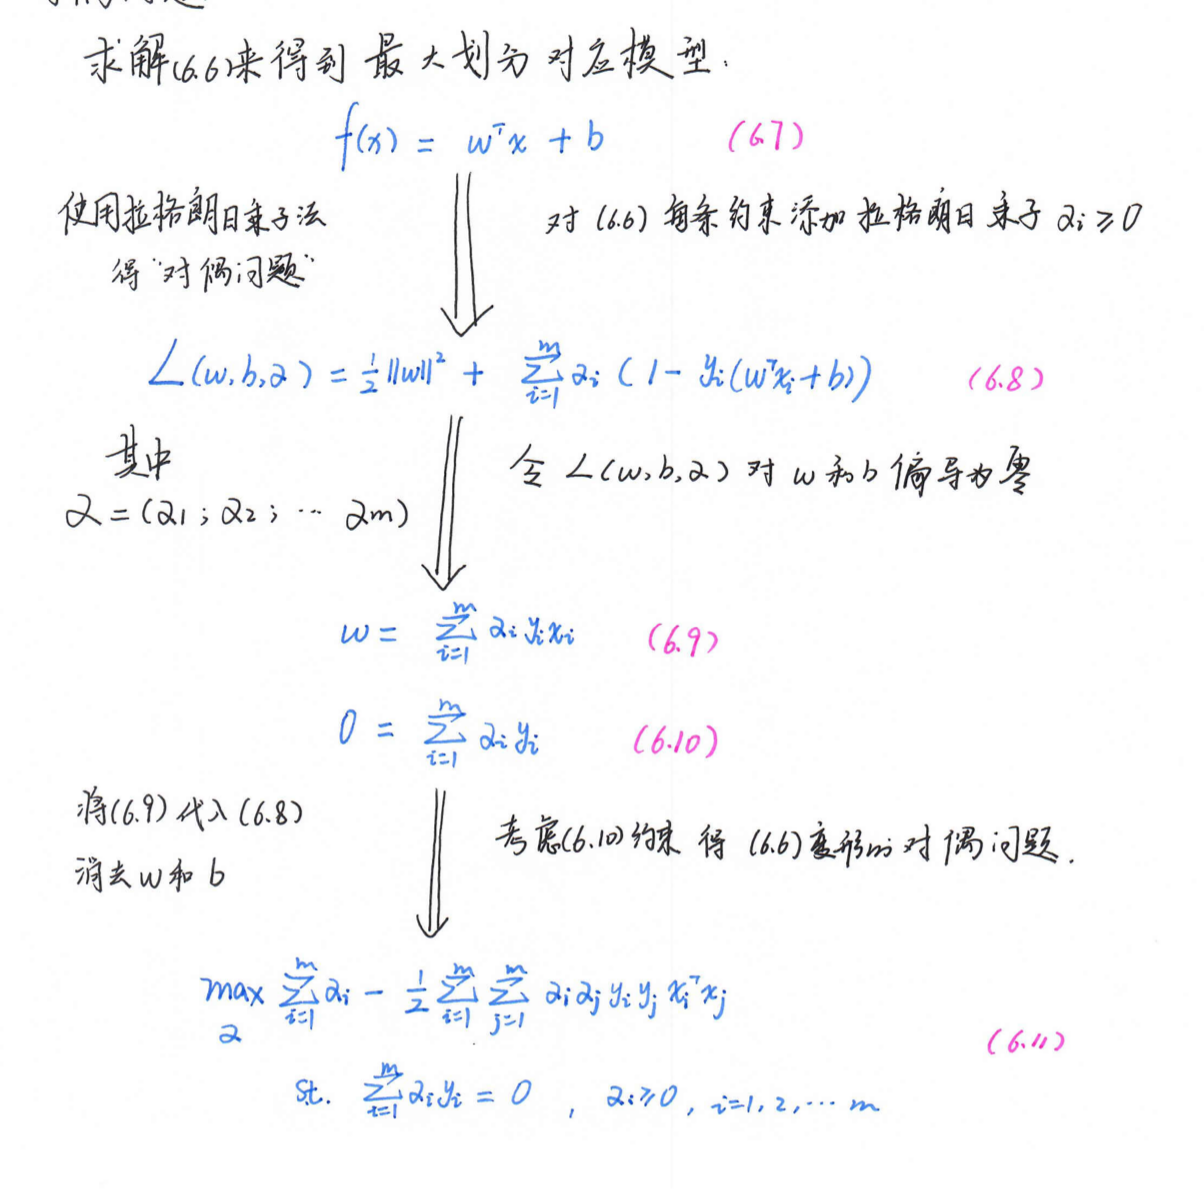 求解(6.6)来得到 最大划分 对应模型.
f(x) = wᵀx + b (6.7)
使用拉格朗日乘子法
得"对偶问题"
对(6.6)每条约束添加拉格朗日乘子 αi ≥ 0
L(w,b,α) = 1/2 ||w||² + Σ_{i=1}^{m} αi (1 - yi(wᵀxi + b)) (6.8)
其中
α = (α1; α2; … αm)
令 L(w,b,α) 对 w 和 b 偏导为零
w = Σ_{i=1}^{m} αi yi xi (6.9)
0 = Σ_{i=1}^{m} αi yi (6.10)
将(6.9)代入(6.8)
消去 w 和 b
考虑(6.10)约束 得 (6.6)变形的对偶问题.
max_α Σ_{i=1}^{m} αi - 1/2 Σ_{i=1}^{m} Σ_{j=1}^{m} αi αj yi yj xiᵀxj
(6.11)
st. Σ_{i=1}^{m} αi yi = 0 , αi ≥ 0, i=1,2,… m